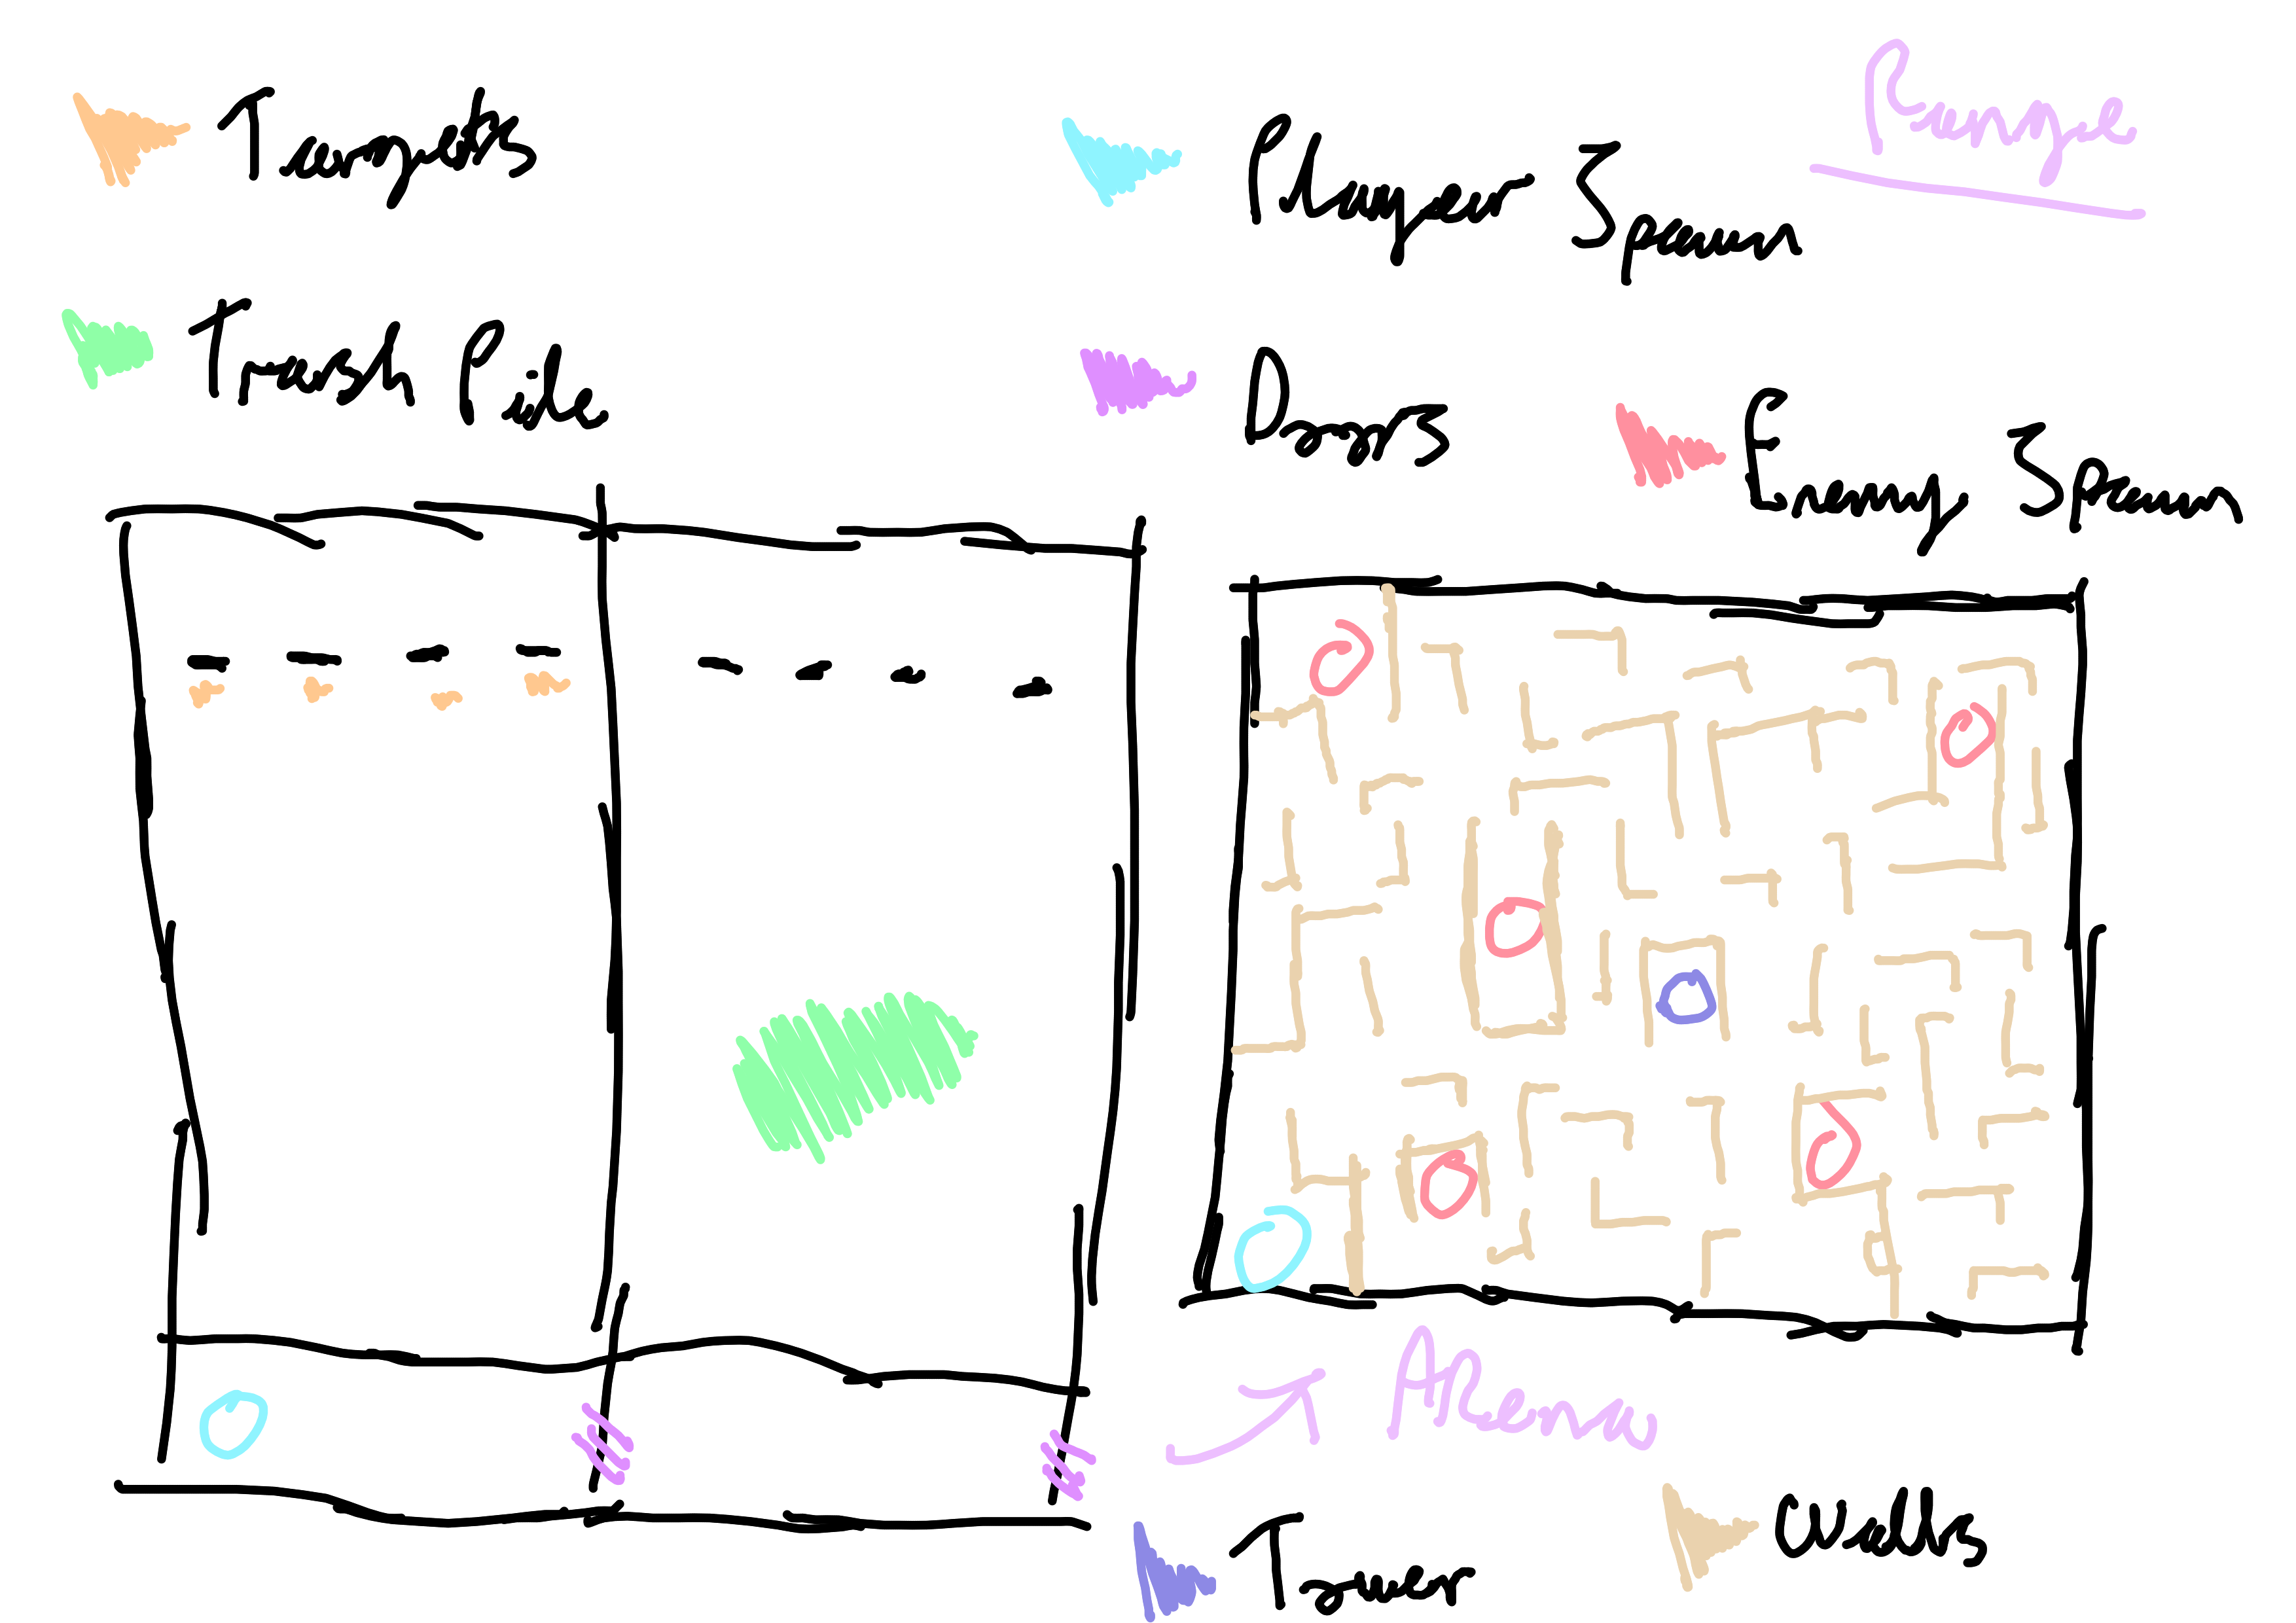 Targets
Player Spawn
Range
Trash Pile
Doors
Enemy Spawn
Arena
Tower
Walls